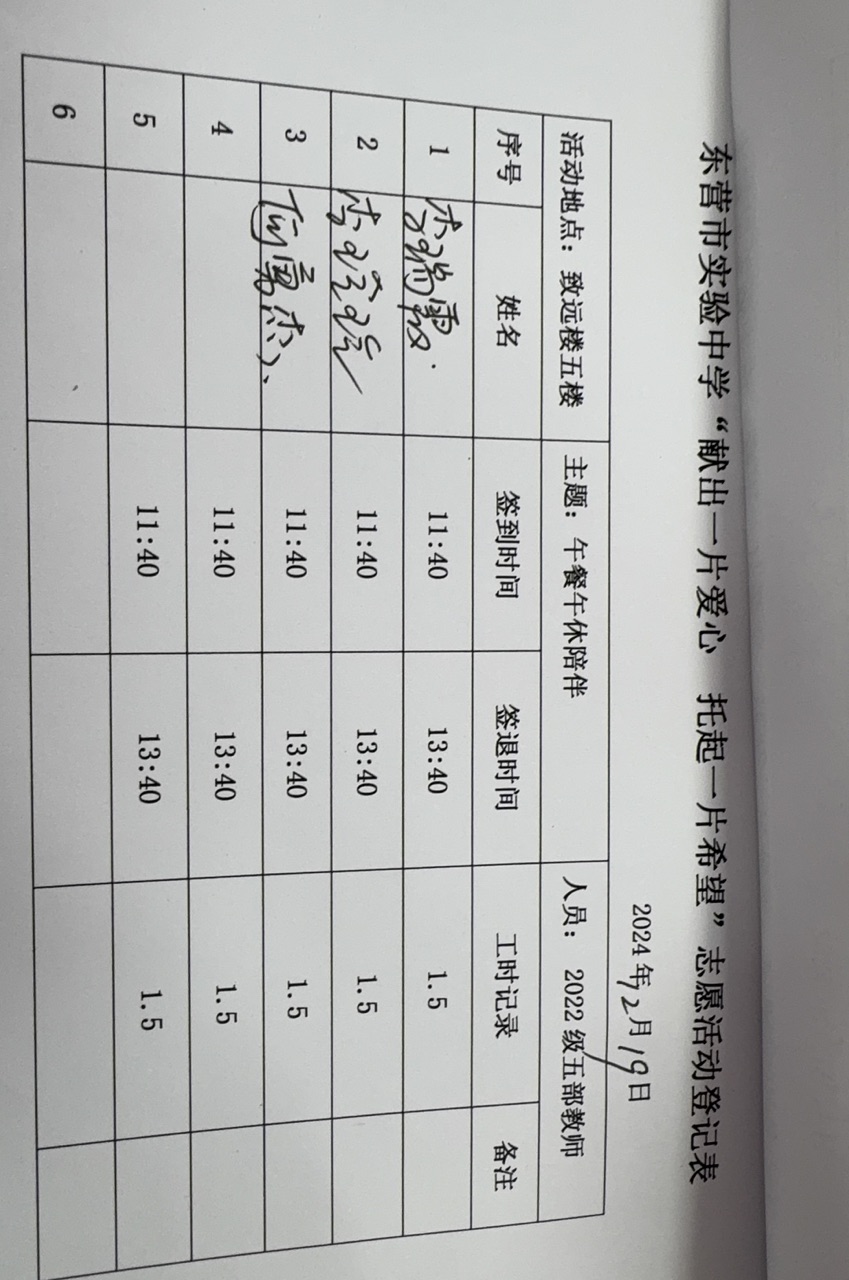 东营市实验中学“献出一片爱心 托起一片希望”志愿活动登记表
2024年12月19日
活动地点：致远楼五楼 主题：午餐午休陪伴 人员：2022级五部教师
序号 姓名 签到时间 签退时间 工时记录 备注
1 李瑞霞 11:40 13:40 1.5
2 李 11:40 13:40 1.5
3 11:40 13:40 1.5
4 11:40 13:40 1.5
5 11:40 13:40 1.5
6